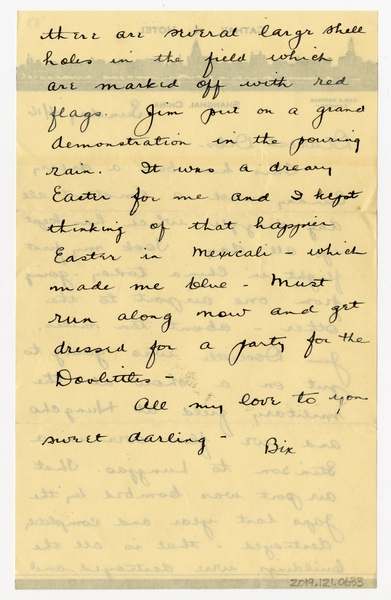 there are several large shell
holes in the field which
are marked off with red
flags. Jim put on a grand
demonstration in the pouring
rain. It was a dreary
Easter for me and I kept
thinking of that happier
Easter in Mexicali - which
made me blue - Must
run along now and get
dressed for a party for the
Doolittles -
All my love to you
sweet darling -
Bix
2019.121.0633